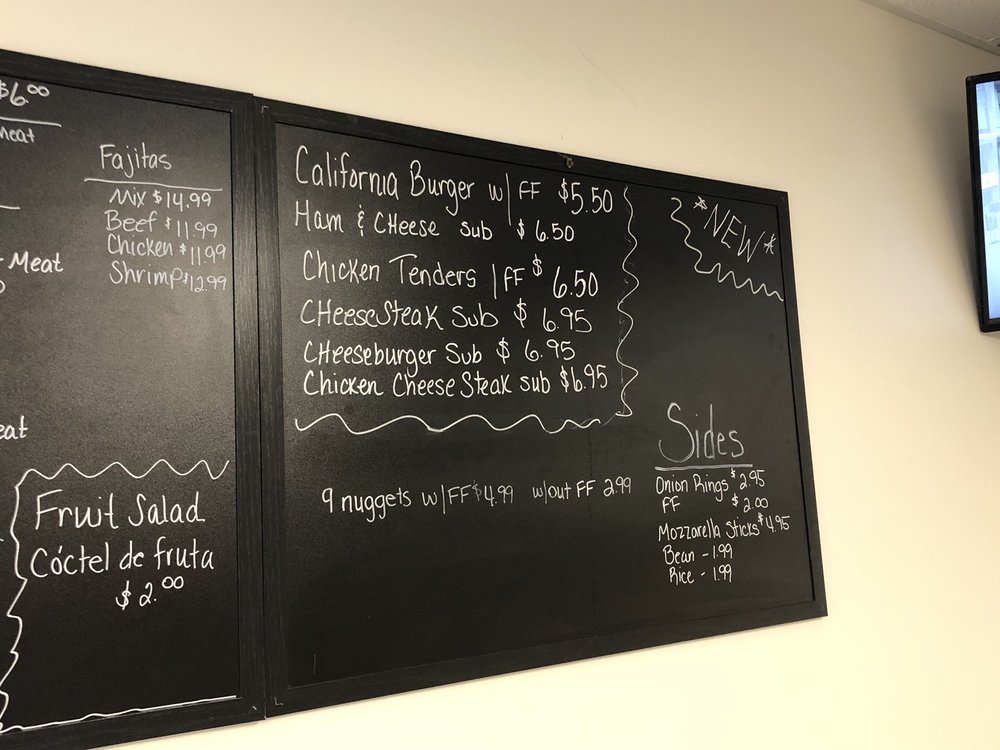 $6.00
meat
Fajitas
Mix $14.99
Beef $11.99
Chicken $11.99
Shrimp $12.99
Meat
eat
Fruit Salad
Cóctel de fruta
$2.00
California Burger w/ FF $5.50
Ham & CHeese sub $6.50
Chicken Tenders / FF $6.50
CHeeseSteak Sub $6.95
CHeeseburger Sub $6.95
Chicken Cheese Steak sub $6.95
9 nuggets w/FF $4.99 w/out FF 2.99
*NEW*
Sides
Onion Rings $2.95
FF $2.00
Mozzarella Sticks $4.95
Bean - 1.99
Rice - 1.99